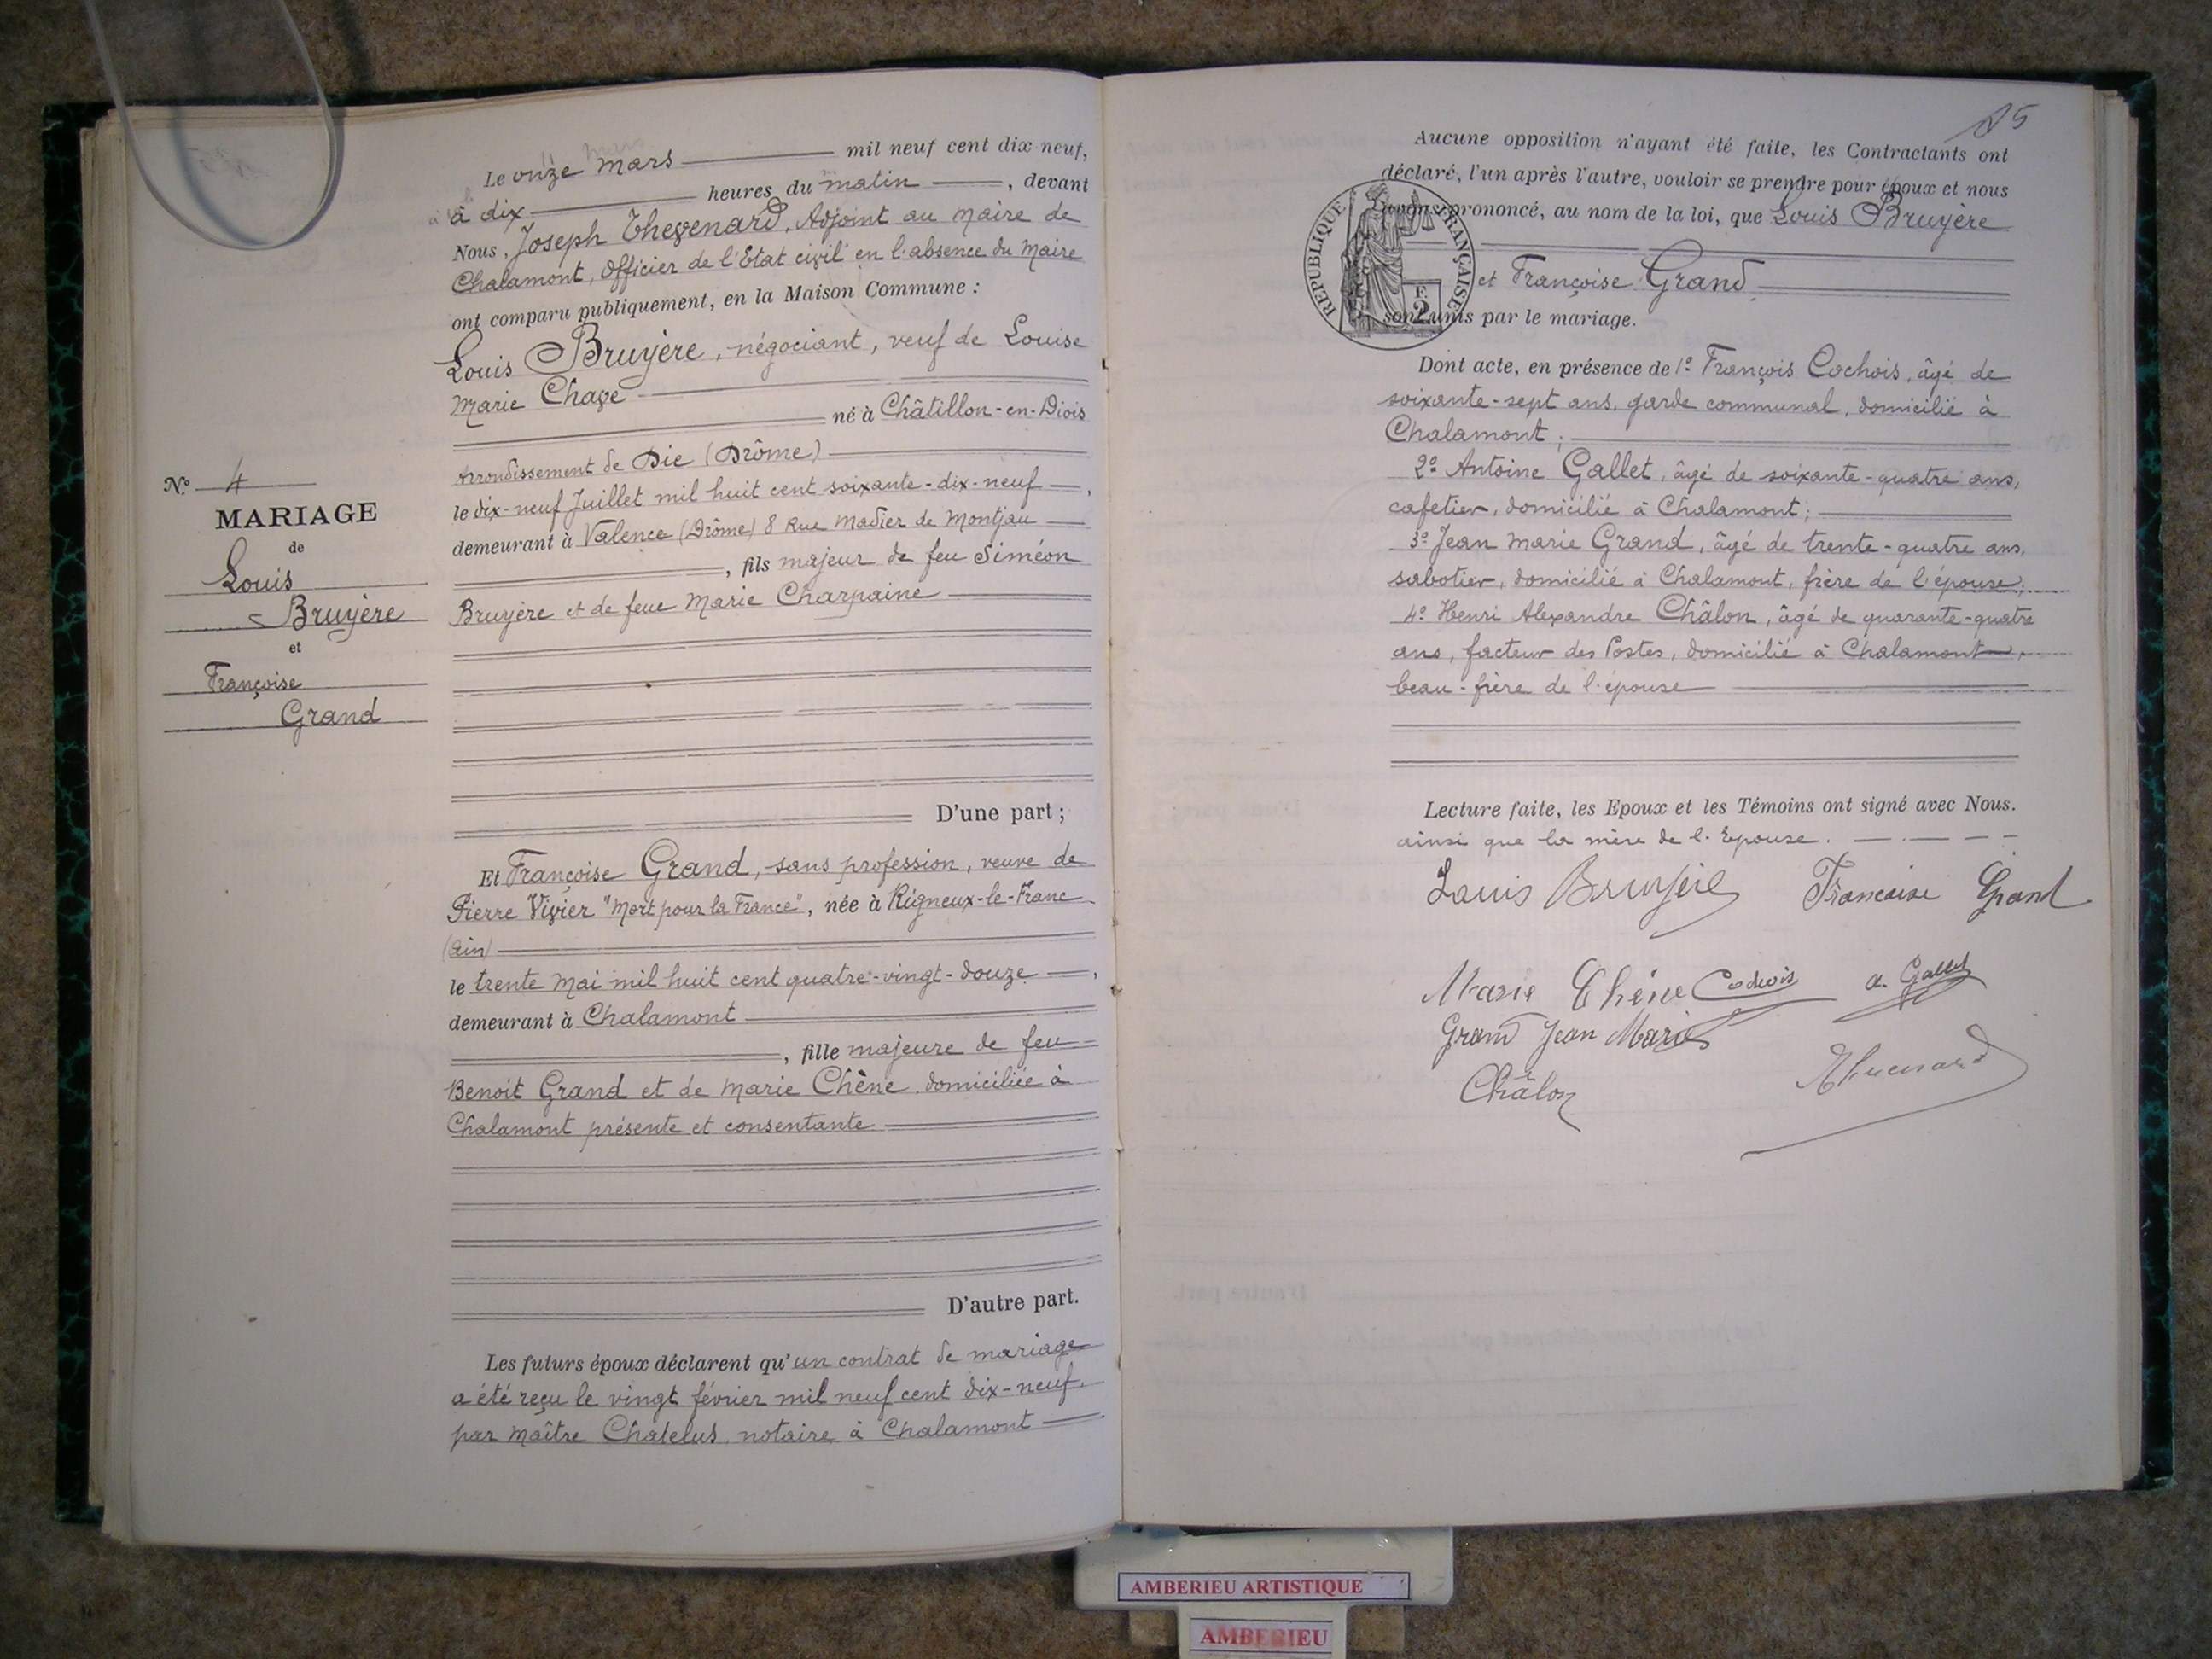 N.º 4
MARIAGE
de
Louis
Bruyère
et
Françoise
Grand
Le onze mars mil neuf cent dix-neuf,
à dix heures du matin, devant
Nous, Joseph Thevenard, Adjoint au Maire de
Chalamont, Officier de l'Etat civil en l'absence du Maire
ont comparu publiquement, en la Maison Commune :
Louis Bruyère, négociant, veuf de Louise
Marie Chave
né à Châtillon-en-Diois
Arrondissement de Die (Drôme)
le dix-neuf Juillet mil huit cent soixante-dix-neuf,
demeurant à Valence (Drôme) 8 Rue Madier de Montjau
, fils majeur de feu Siméon
Bruyère et de feue Marie Charpaine
D'une part ;
Et Françoise Grand, sans profession, veuve de
Pierre Vivier "Mort pour la France", née à Rigneux-le-Franc
(Ain)
le trente Mai mil huit cent quatre-vingt-douze,
demeurant à Chalamont
, fille majeure de feu
Benoit Grand et de Marie Chêne domiciliée à
Chalamont présente et consentante
D'autre part.
Les futurs époux déclarent qu'un contrat de mariage
a été reçu le vingt février mil neuf cent dix-neuf.
par Maître Chatelus, notaire à Chalamont
Aucune opposition n'ayant été faite, les Contractants ont
déclaré, l'un après l'autre, vouloir se prendre pour époux et nous
avons prononcé, au nom de la loi, que Louis Bruyère
et Françoise Grand
sont unis par le mariage.
RÉPUBLIQUE FRANÇAISE
F.
2
Dont acte, en présence de 1º François Cochois, âgé de
soixante-sept ans, garde communal, domicilié à
Chalamont ;
2º Antoine Gallet, âgé de soixante-quatre ans,
cafetier, domicilié à Chalamont ;
3º Jean Marie Grand, âgé de trente-quatre ans,
sabotier, domicilié à Chalamont, frère de l'épouse ;
4º Henri Alexandre Châlon, âgé de quarante-quatre
ans, facteur des Postes, domicilié à Chalamont,
beau-frère de l'épouse
Lecture faite, les Epoux et les Témoins ont signé avec Nous.
ainsi que la mère de l'Epouse.
Louis Bruyère Francoise Grand
Marie Chêne Cochois a. Gallet
Grand Jean Marie
Châlon Thevenard
AMBERIEU ARTISTIQUE
AMBERIEU